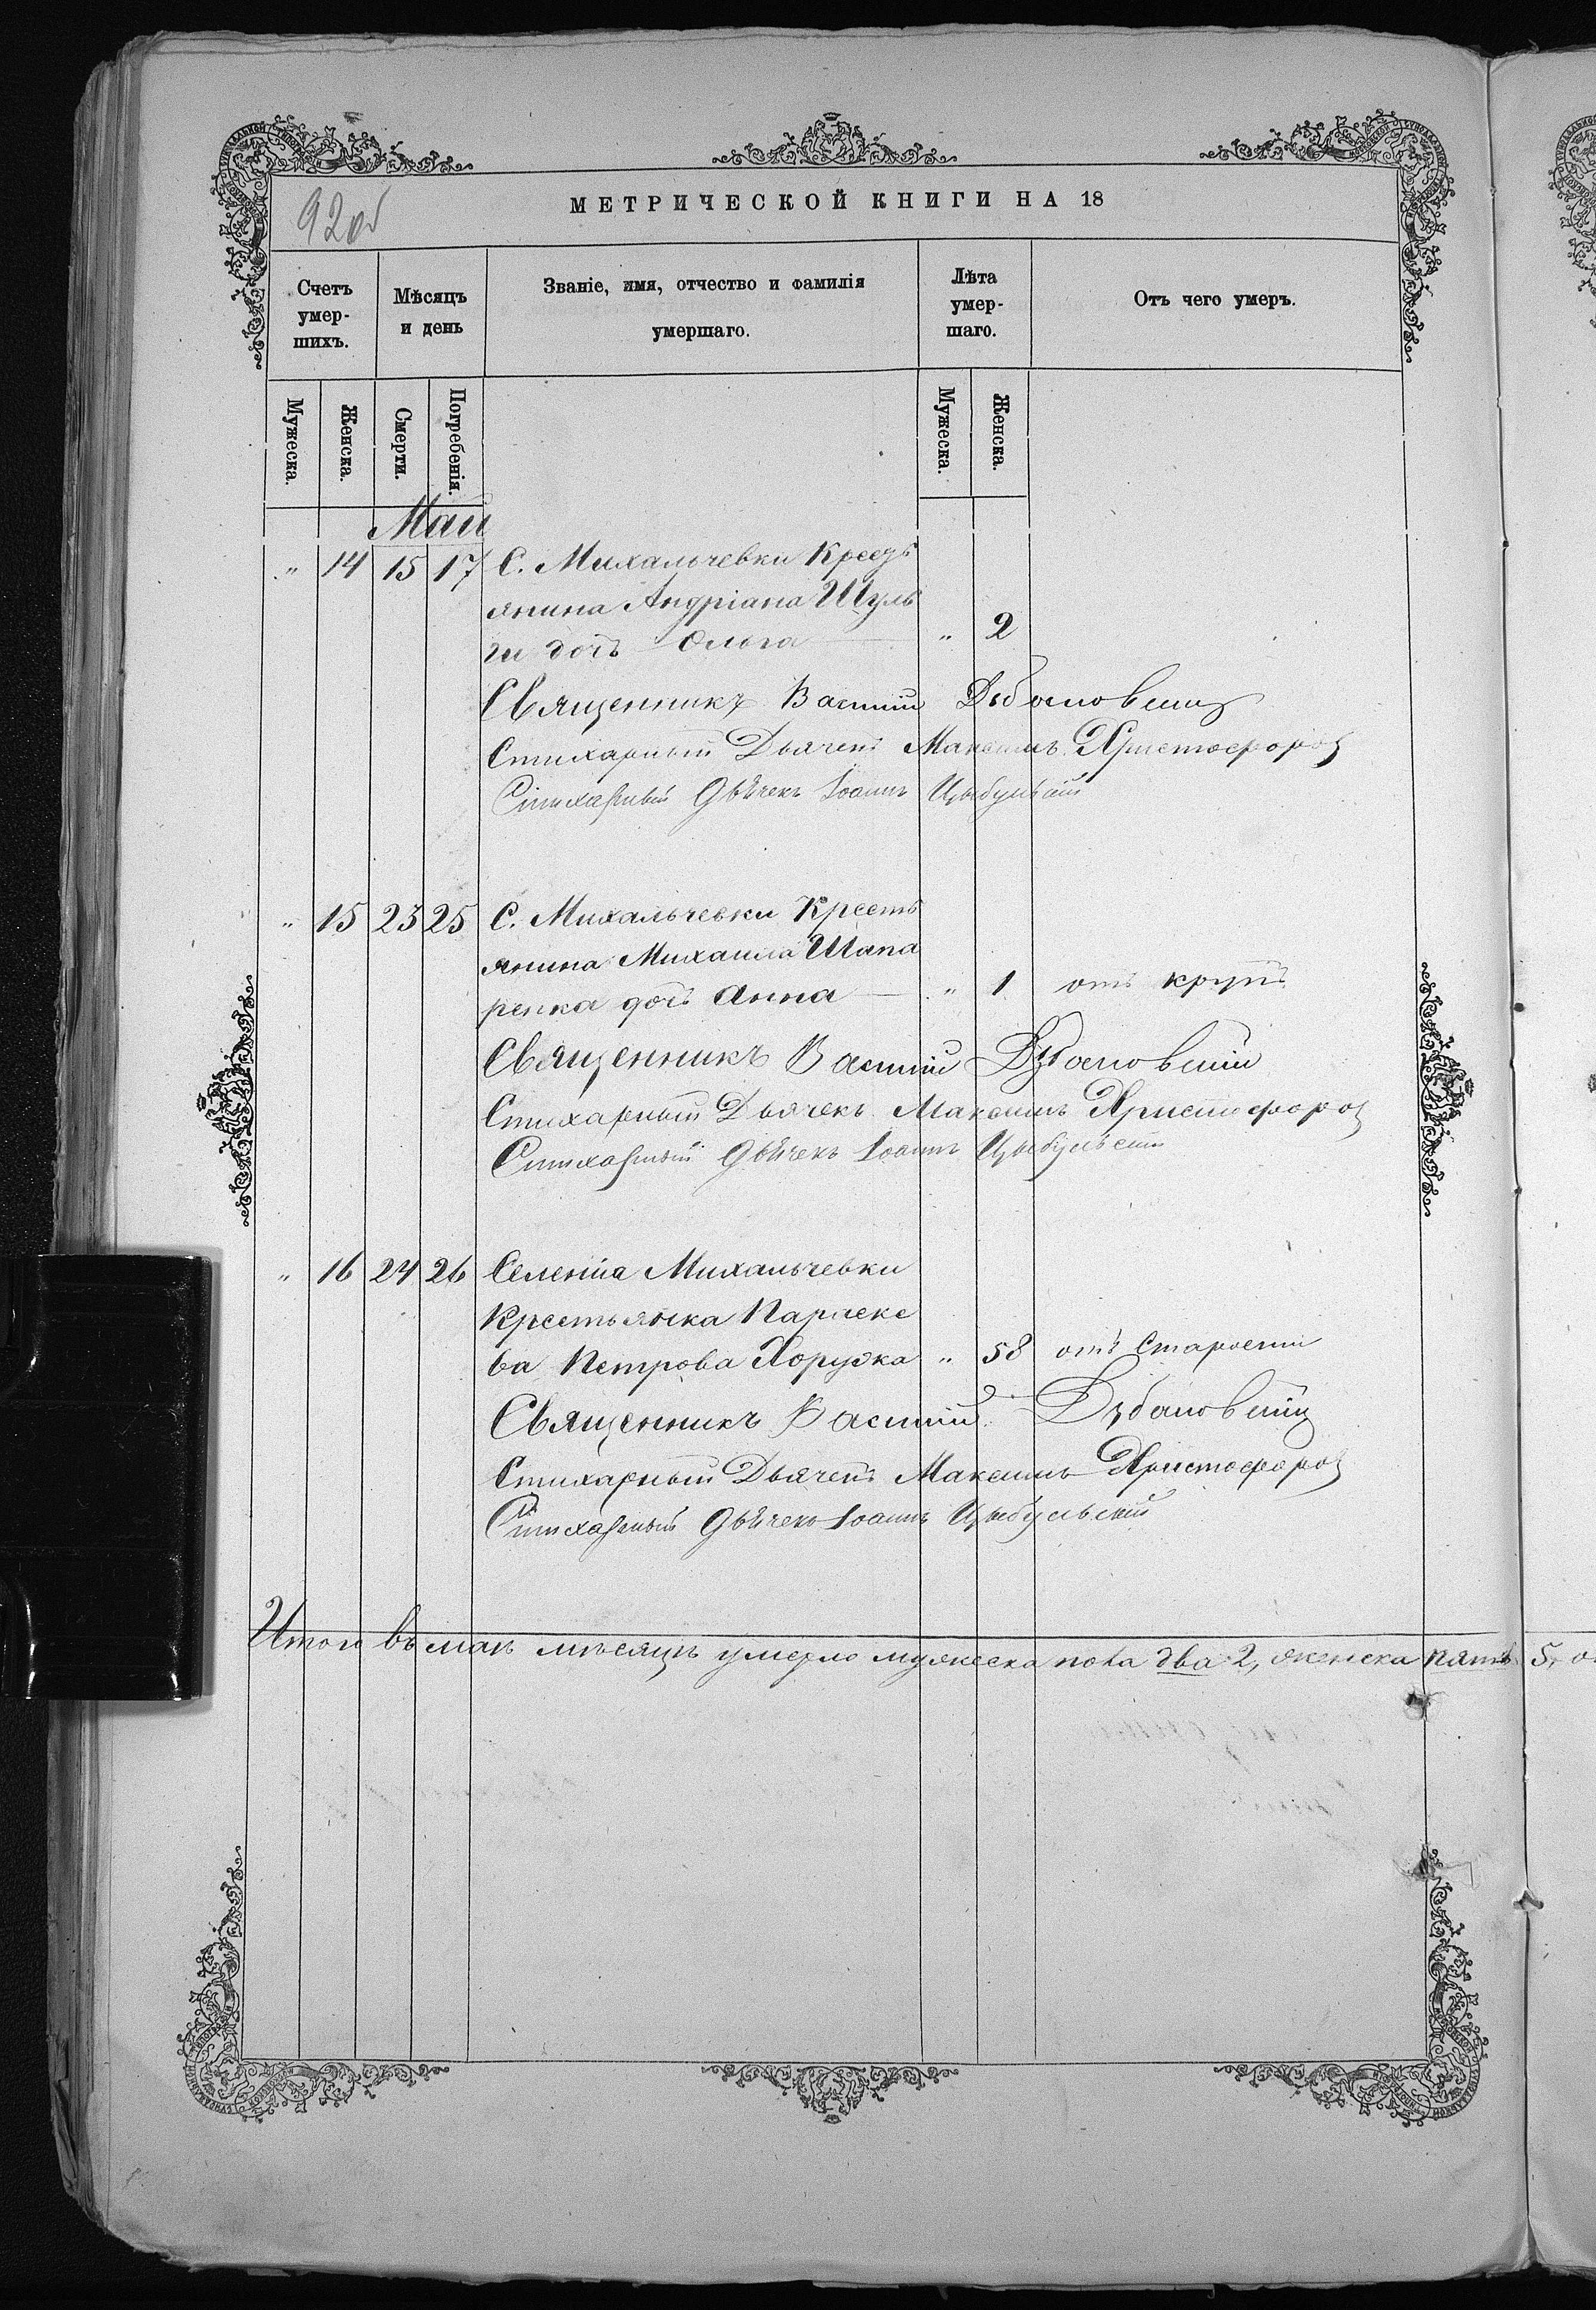 92 об
МЕТРИЧЕСКОЙ КНИГИ НА 18
Счетъ умер-шихъ.
Мѣсяцъ и день
Званіе, имя, отчество и фамилія умершаго.
Лѣта умер-шаго.
Отъ чего умеръ.
Мужеска. Женска. Смерти. Погребенія. Мужеска. Женска.
Май
" 14 15 17 С. Михальчевки Кресть
янина Андріана Шуль
ги дочь Ольга " 2
Священникъ Василій
Стихарный Дьячекъ Максимъ Христофоровъ
Стихарный Дьячекъ Іоаннъ Цыбульскій
" 15 23 25 С. Михальчевки Кресть
янина Михаила Шапа
ренка дочь Анна " 1 отъ крупъ
Священникъ Василій
Стихарный Дьячекъ Максимъ Христофоровъ
Стихарный Дьячекъ Іоаннъ Цыбульскій
" 16 24 26 Селенія Михальчевки
Крестьянка Параске
ва Петрова Хоружа " 58 отъ Старости
Священникъ Василій
Стихарный Дьячекъ Максимъ Христофоровъ
Стихарный Дьячекъ Іоаннъ Цыбульскій
Итого въ маѣ мѣсяцѣ умерло мужеска пола два 2, женска пять 5, о